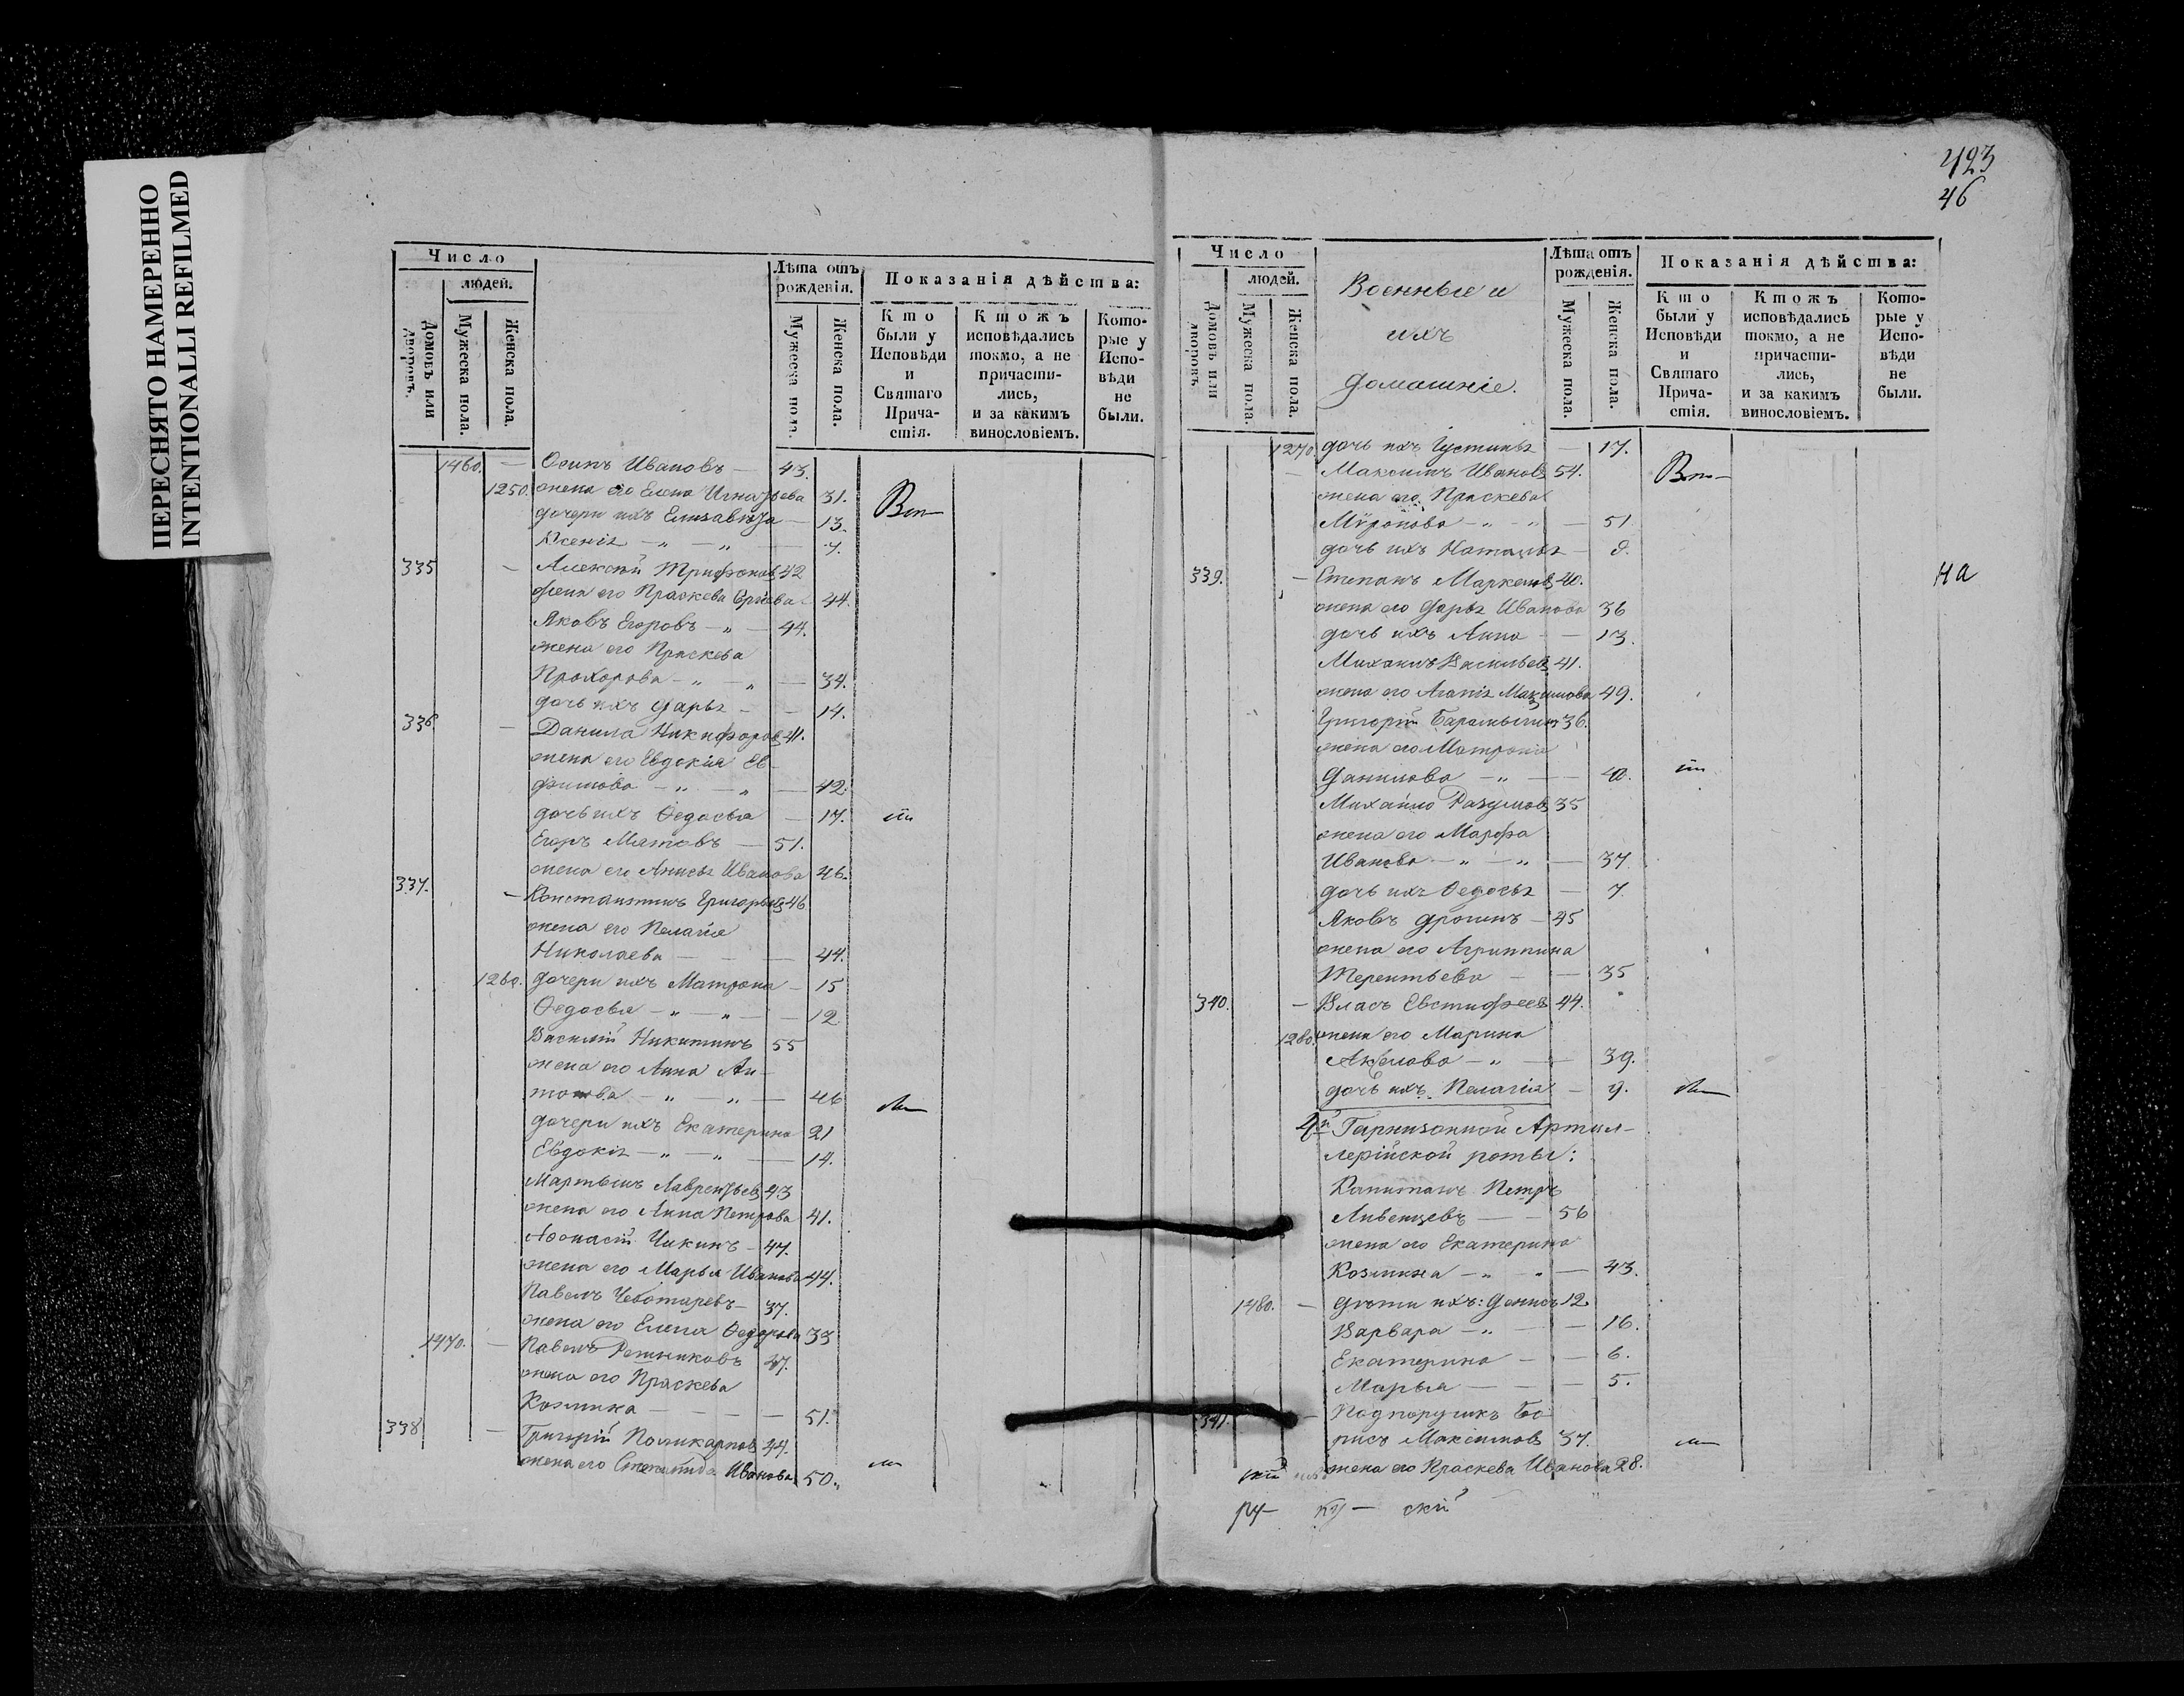 ПЕРЕСНЯТО НАМЕРЕННО
INTENTIONALLI REFILMED
Число
людей.
Домовъ или дворовъ.
Мужеска пола.
Женска пола.
Лѣта отъ рожденія.
Мужеска пола.
Женска пола.
Показанія дѣйства:
Кто были у Исповѣди и Святаго Причастія.
Ктожъ исповѣдались токмо, а не причастились, и за какимъ винословіемъ.
Которые у Исповѣди не были.
1460. — Осипъ Ивановъ — 43.
1250. жена его Елена Игнатьева 31.
дочери ихъ Елизавета — 13.
Ксенія — „ — „ — 7.
335 — Алексѣй Трифоновъ 42
жена его Праскева 44.
Яковъ Егоровъ — „ — 44.
жена его Праскева
Прохорова — „ — „ — 34.
дочь ихъ Дарья — — 14.
336 — Данила Никифоровъ 41.
жена его Евдокія Ев-
фимова — „ — „ — 42.
дочь ихъ Ѳедосья — 17.
Егоръ — 51.
жена его Анисья Иванова 46.
337. — Константинъ Григорьевъ 46
жена его Пелагія
Николаева — — — 44.
1260. дочери ихъ Матрона — 15
Ѳедосья — „ — „ — 12
Василій Никитинъ 55
жена его Анна Ан-
тонова — „ — „ — 46
дочери ихъ Екатерина 21
Евдокія — „ — „ — 14.
Мартынъ Лаврентьевъ 43
жена его Анна Петрова 41.
Аѳонасій Чикинъ — 47.
жена его Марья Иванова 44.
Павелъ Чеботаревъ — 37.
жена его Елена Ѳедорова 33
1470. — Павелъ Решниковъ 47.
жена его Праскева
Козмина — — — 51.
338 — Григорій Поликарповъ 44.
жена его Степанида Иванова 50.
423
46
Число
людей.
Домовъ или дворовъ.
Мужеска пола.
Женска пола.
Военные и
ихъ
домашніе.
Лѣта отъ рожденія.
Мужеска пола.
Женска пола.
Показанія дѣйства:
Кто были у Исповѣди и Святаго Причастія.
Ктожъ исповѣдались токмо, а не причастились, и за какимъ винословіемъ.
Которые у Исповѣди не были.
1270 дочь ихъ Густинья — 17.
— Максимъ Ивановъ 54.
жена его Праскева
Мѵронова — „ — „ — 51
дочь ихъ Наталья —
339. — Степанъ Маркеловъ 40.
на
жена его Дарья Иванова 36
дочь ихъ Анна — — 13.
Михаилъ Васильевъ 41.
жена его Агапія Максимова 49.
Григорій 36.
жена его Матрона
Данилова — „ — — 40.
Михайло Разумовъ 35
жена его Марфа
Иванова — „ — „ — 37
дочь ихъ Ѳедосья — 7.
Яковъ — 45
жена его Агриппина
Терентьева — — 35
340. — Власъ Евстифеевъ 44.
1280. жена его Марина
Акулова — „ — — 39.
дочь ихъ Пелагія — 9.
4й Гарнизонной Артил-
лерійской роты:
Капитанъ Петръ
Ливенцевъ — — 56
жена его Екатерина
Козмина — „ „ — 43.
1480. — дѣти ихъ: Денисъ 12.
Варвара — „ — — 16.
Екатерина — — 6.
Марья — — — 5.
341. — Подпорутчикъ Бо-
рисъ Максимовъ 37.
жена его Праскева Иванова 28.
ру— ку— скій